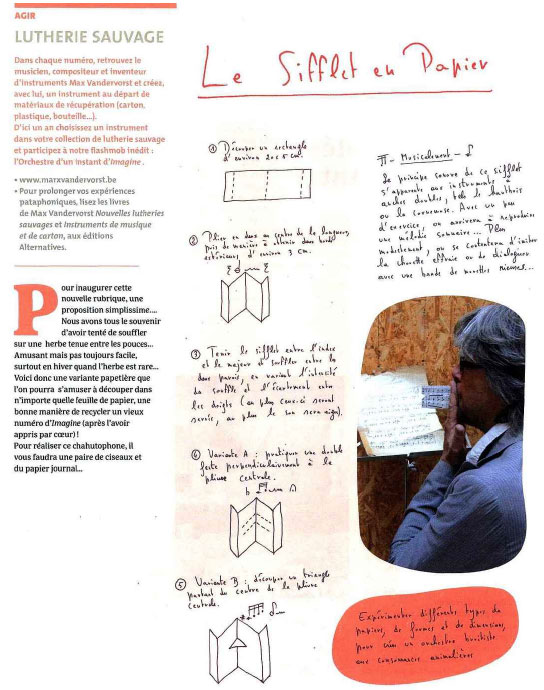 AGIR
LUTHERIE SAUVAGE
Dans chaque numéro, retrouvez le
musicien, compositeur et inventeur
d'instruments Max Vandervorst et créez,
avec lui, un instrument au départ de
matériaux de récupération (carton,
plastique, bouteille...).
D'ici un an choisissez un instrument
dans votre collection de lutherie sauvage
et participez à notre flashmob inédit :
l'Orchestre d'un instant d'Imagine.
• www.marxvandervorst.be
• Pour prolonger vos expériences
pataphoniques, lisez les livres
de Max Vandervorst Nouvelles lutheries
sauvages et Instruments de musique
et de carton, aux éditions
Alternatives.
Pour inaugurer cette
nouvelle rubrique, une
proposition simplissime....
Nous avons tous le souvenir
d'avoir tenté de souffler
sur une herbe tenue entre les pouces...
Amusant mais pas toujours facile,
surtout en hiver quand l'herbe est rare...
Voici donc une variante papetière que
l'on pourra s'amuser à découper dans
n'importe quelle feuille de papier, une
bonne manière de recycler un vieux
numéro d'Imagine (après l'avoir
appris par cœur) !
Pour réaliser ce chahutophone, il
vous faudra une paire de ciseaux et
du papier journal...
Le Sifflet en Papier
① Découper un rectangle
d'environ 20 x 5 cm.
② Plier en deux au centre de la longueur,
puis de manière à obtenir deux bords
extérieurs d'environ 3 cm.
③ Tenir le sifflet entre l'index
et le majeur et souffler entre les
deux parois, en variant l'intensité
du souffle et l'écartement entre
les doigts (au plus ceux-ci seront
serrés, au plus le son sera aigu).
④ Variante A : pratiquer une double
fente perpendiculairement à la
pliure centrale.
⑤ Variante B : découper un triangle
partant du centre de la pliure
centrale.
Musicalement
Le principe sonore de ce sifflet
s'apparente aux instruments à
anches doubles, tels le hautbois
ou la cornemuse. Avec un peu
d'exercice, on arrivera à reproduire
une mélodie sommaire... Plus
modestement, on se contentera d'imiter
la chouette effraie ou de dialoguer
avec une bande de mouettes rieuses...
Expérimenter différents types de
papiers, de formes et de dimensions,
pour créer un orchestre bruitiste
aux consonances animalières